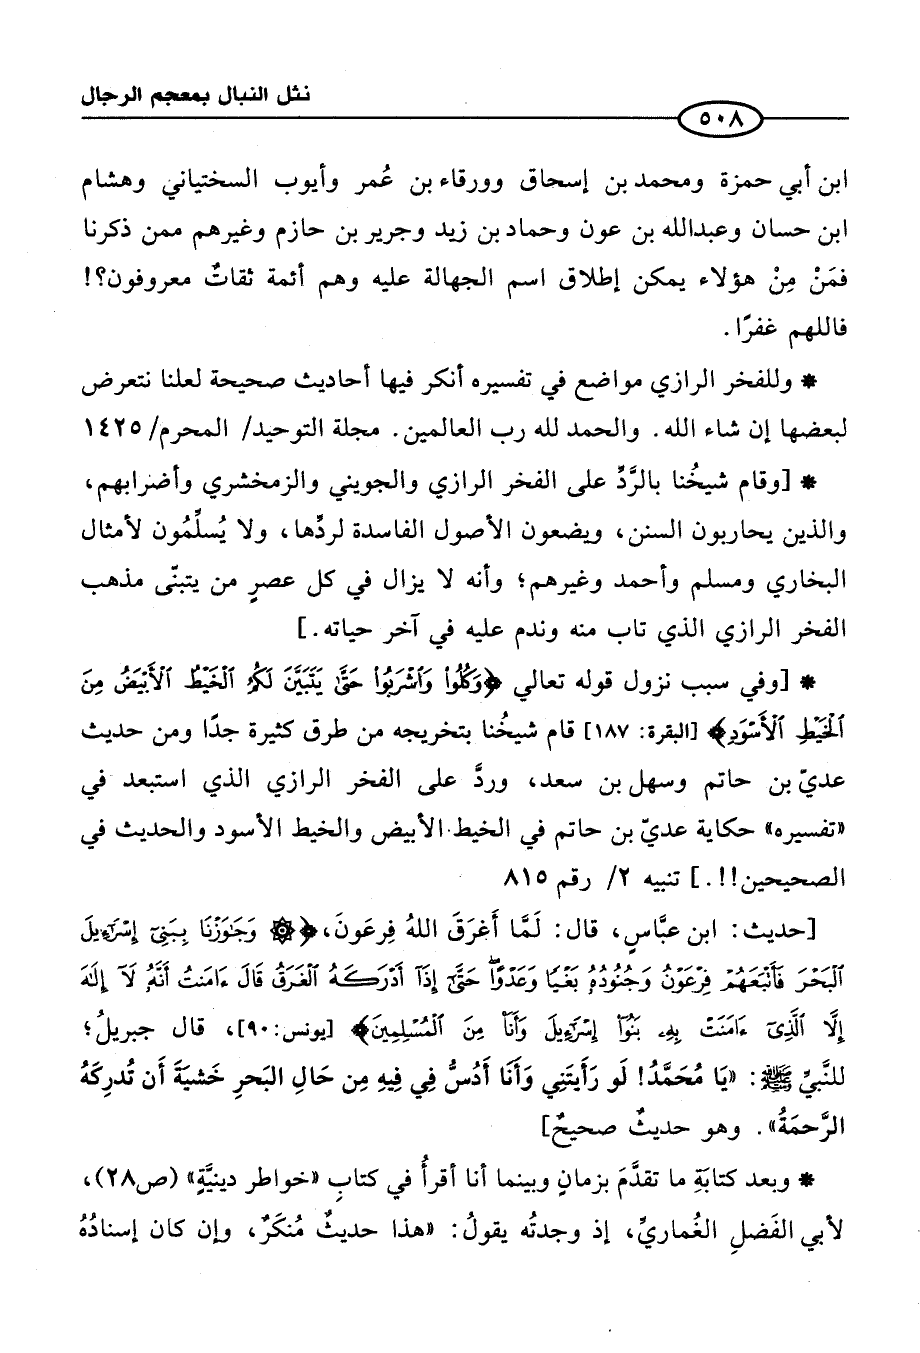 نثل النبال بمعجم الرجال
٥٠٨
ابن أبي حمزة ومحمد بن إسحاق وورقاء بن عُمر وأيوب السختياني وهشام
ابن حسان وعبدالله بن عون وحماد بن زيد وجرير بن حازم وغيرهم ممن ذكرنا
فمَنْ مِنْ هؤلاء يمكن إطلاق اسم الجهالة عليه وهم أئمة ثقاتٌ معروفون؟!
فاللهم غفرًا.
* وللفخر الرازي مواضع في تفسيره أنكر فيها أحاديث صحيحة لعلنا نتعرض
لبعضها إن شاء الله. والحمد لله رب العالمين. مجلة التوحيد/ المحرم/ ١٤٢٥
* [وقام شيخُنا بالرَّدِّ على الفخر الرازي والجويني والزمخشري وأضرابهم،
والذين يحاربون السنن، ويضعون الأصول الفاسدة لردِّها، ولا يُسلِّمُون لأمثال
البخاري ومسلم وأحمد وغيرهم؛ وأنه لا يزال في كل عصرٍ من يتبنّى مذهب
الفخر الرازي الذي تاب منه وندم عليه في آخر حياته.]
* [وفي سبب نزول قوله تعالي ﴿وَكُلُوا۟ وَٱشْرَبُوا۟ حَتَّىٰ يَتَبَيَّنَ لَكُمُ ٱلْخَيْطُ ٱلْأَبْيَضُ مِنَ
ٱلْخَيْطِ ٱلْأَسْوَدِ﴾ [البقرة: ١٨٧] قام شيخُنا بتخريجه من طرق كثيرة جدًا ومن حديث
عديّ بن حاتم وسهل بن سعد، وردَّ على الفخر الرازي الذي استبعد في
«تفسيره» حكاية عديّ بن حاتم في الخيط الأبيض والخيط الأسود والحديث في
الصحيحين!!.] تنبيه ٢/ رقم ٨١٥
[حديث: ابن عبَّاسٍ، قال: لَمَّا أَغرَقَ اللهُ فِرعَونَ، ﴿۞ وَجَٰوَزْنَا بِبَنِىٓ إِسْرَٰٓءِيلَ
ٱلْبَحْرَ فَأَتْبَعَهُمْ فِرْعَوْنُ وَجُنُودُهُۥ بَغْيًا وَعَدْوًا ۖ حَتَّىٰٓ إِذَآ أَدْرَكَهُ ٱلْغَرَقُ قَالَ ءَامَنتُ أَنَّهُۥ لَآ إِلَٰهَ
إِلَّا ٱلَّذِىٓ ءَامَنَتْ بِهِۦ بَنُوٓا۟ إِسْرَٰٓءِيلَ وَأَنَا۠ مِنَ ٱلْمُسْلِمِينَ﴾ [يونس: ٩٠]، قال جبريلُ؛
للنَّبيِّ ﷺ: «يَا مُحَمَّدُ! لَو رَأَيتَنِي وَأَنَا أَدُسُّ فِي فِيهِ مِن حَالِ البَحرِ خَشيَةَ أَن تُدرِكَهُ
الرَّحمَةُ». وهو حديثٌ صحيحٌ]
* وبعد كتابَةِ ما تقدَّمَ بزمانٍ وبينما أنا أقرأُ في كتابِ «خواطر دينيَّةٍ» (ص٢٨)،
لأبي الفَضلِ الغُماريِّ، إذ وجدتُه يقولُ: «هذا حديثٌ مُنكَرٌ، وإن كان إسنادُهُ